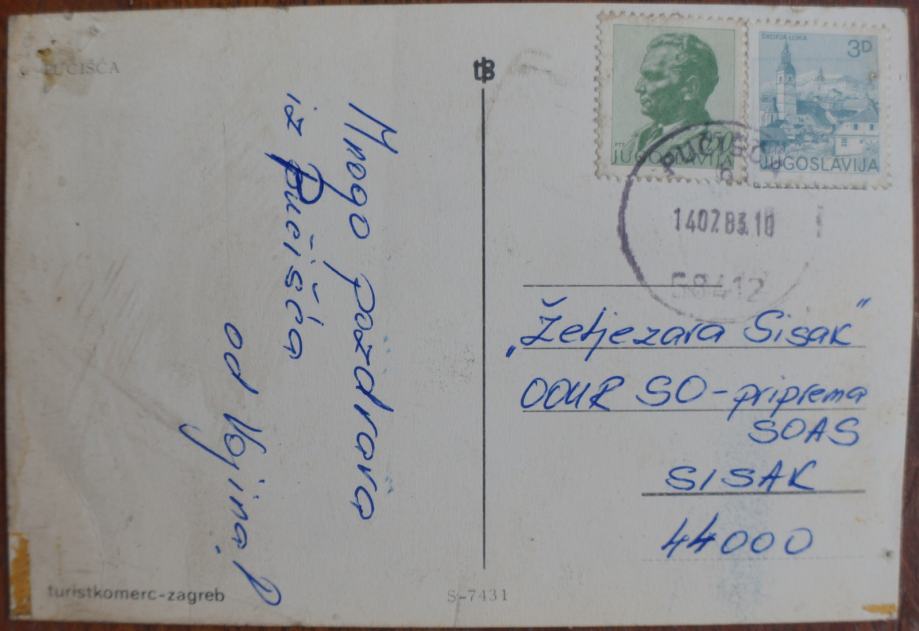 PUČIŠĆA
Mnogo pozdrava
iz Pučišća
od Vojina.P
turistkomerc-zagreb
S-7431
ŠKOFJA LOKA
3D
JUGOSLAVIJA
PTT
JUGOSLAVIJA
PUČIŠĆA
14.07.83.10
58412
"Željezara Sisak"
OOUR SO-priprema
SOAS
SISAK
44000